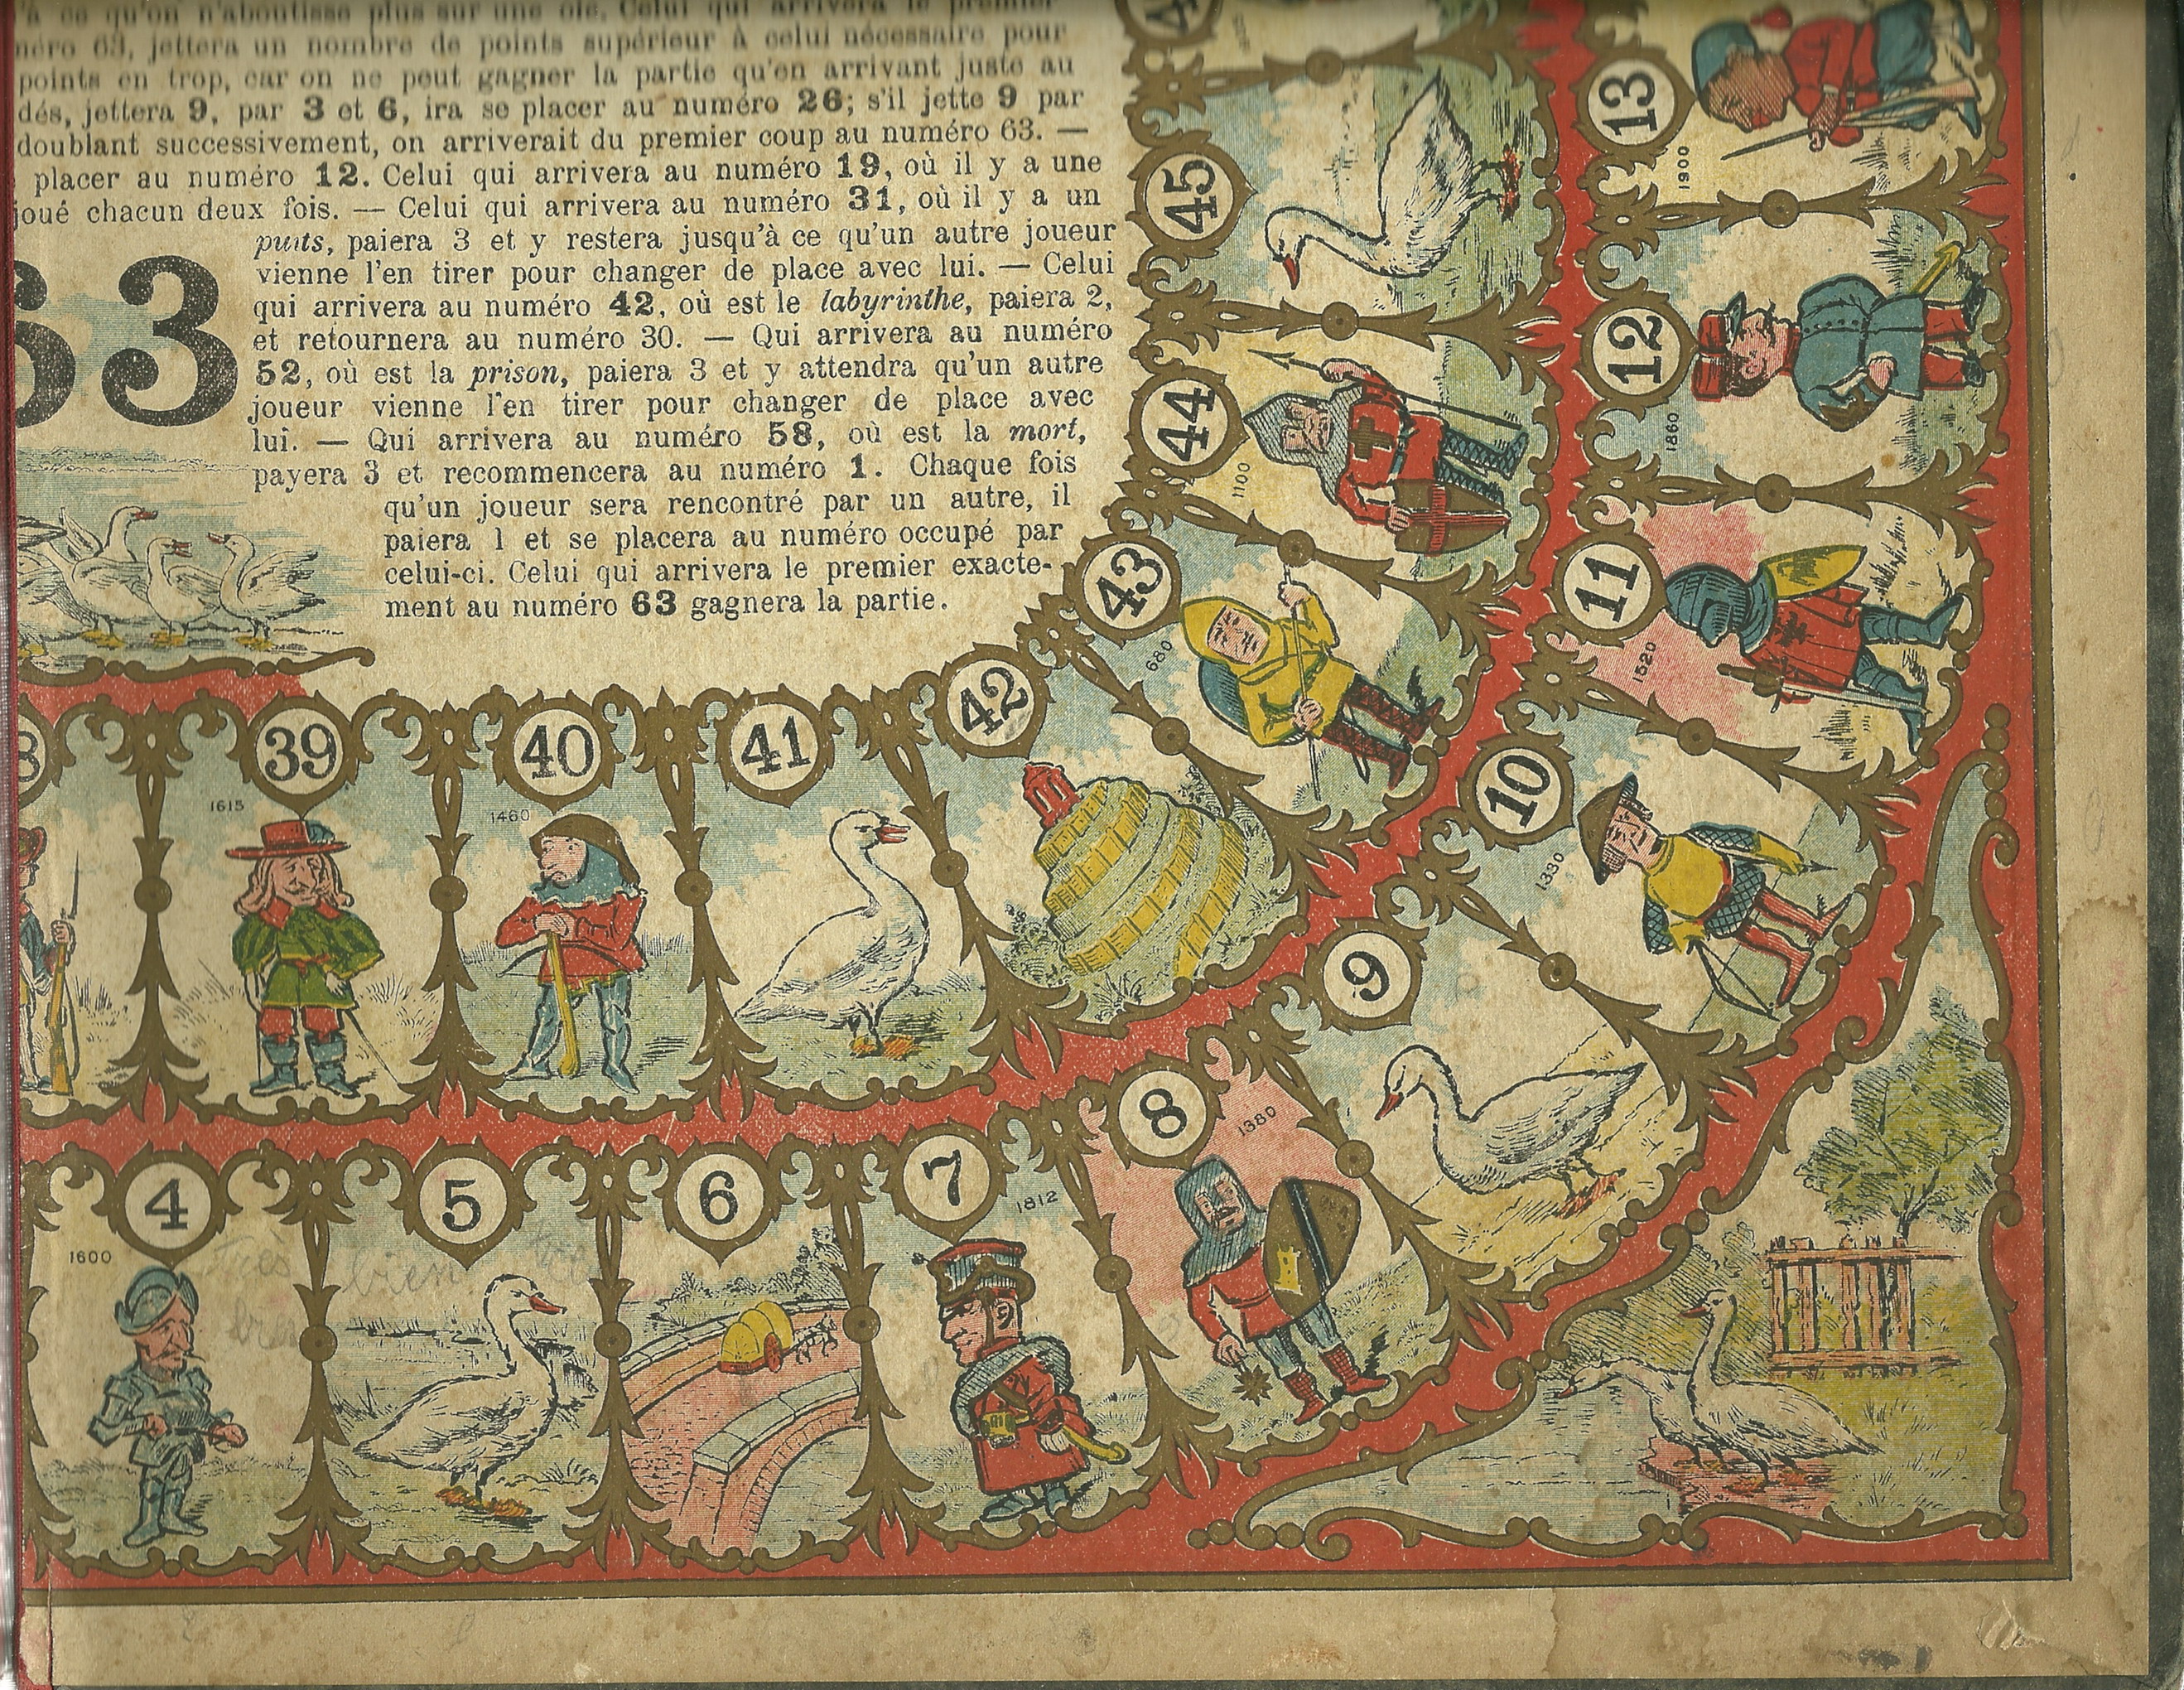 à ce qu'on n'aboutisse plus sur une oie. Celui qui arrivera le premier
méro 63, jettera un nombre de points supérieur à celui nécessaire pour
points en trop, car on ne peut gagner la partie qu'en arrivant juste au
dés, jettera 9, par 3 et 6, ira se placer au numéro 26; s'il jette 9 par
doublant successivement, on arriverait du premier coup au numéro 63. —
placer au numéro 12. Celui qui arrivera au numéro 19, où il y a une
joué chacun deux fois. — Celui qui arrivera au numéro 31, où il y a un
puits, paiera 3 et y restera jusqu'à ce qu'un autre joueur
vienne l'en tirer pour changer de place avec lui. — Celui
qui arrivera au numéro 42, où est le labyrinthe, paiera 2,
et retournera au numéro 30. — Qui arrivera au numéro
52, où est la prison, paiera 3 et y attendra qu'un autre
joueur vienne l'en tirer pour changer de place avec
lui. — Qui arrivera au numéro 58, où est la mort,
payera 3 et recommencera au numéro 1. Chaque fois
qu'un joueur sera rencontré par un autre, il
paiera 1 et se placera au numéro occupé par
celui-ci. Celui qui arrivera le premier exacte-
ment au numéro 63 gagnera la partie.
63
45
44
1100
43
680
42
41
40
1460
39
1615
8
13
1900
12
1860
11
1520
10
1330
9
8
1380
7
1812
6
5
4
1600
Très
bien